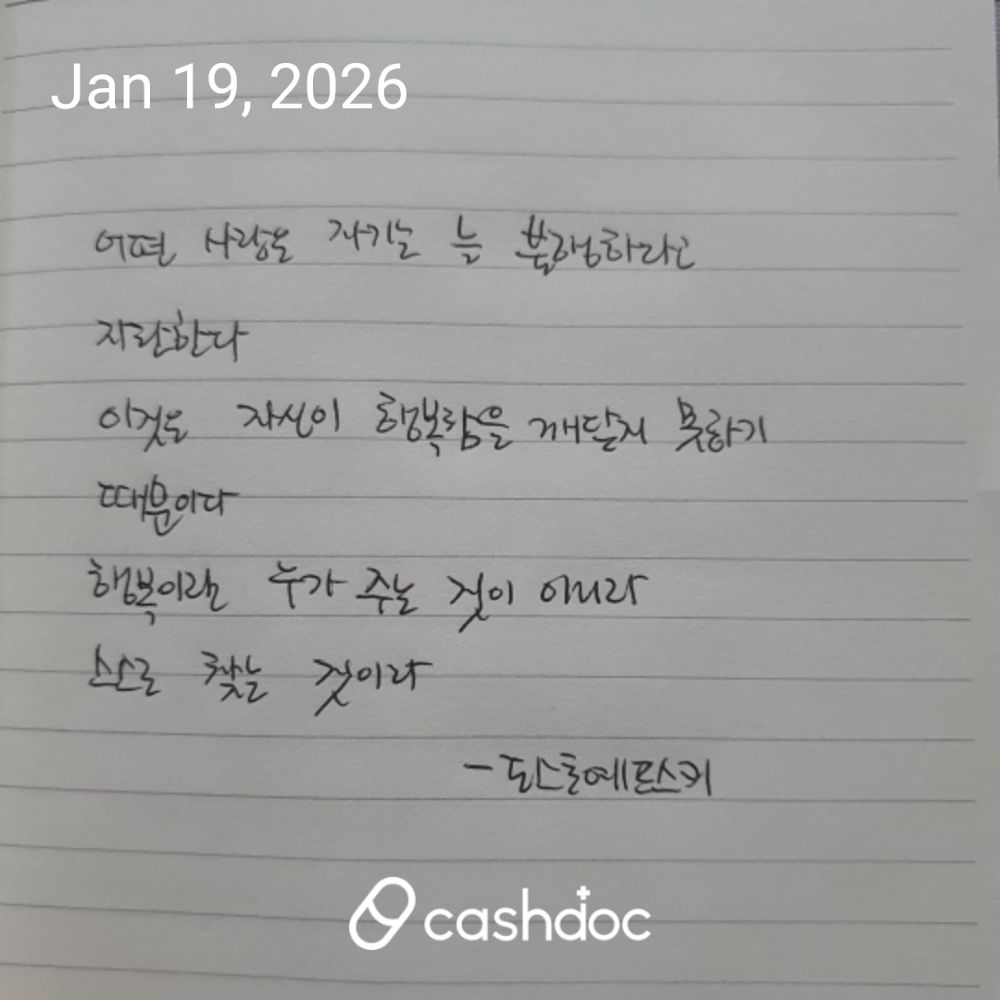 Jan 19, 2026
어떤 사람은 자기는 늘 불행하라고
자란한다
이것은 자신이 행복람을 깨달지 못하기
때문이다
행복이란 누가 주는 것이 아니라
스스로 찾는 것이라
- 도스토예프스키
cashdoc